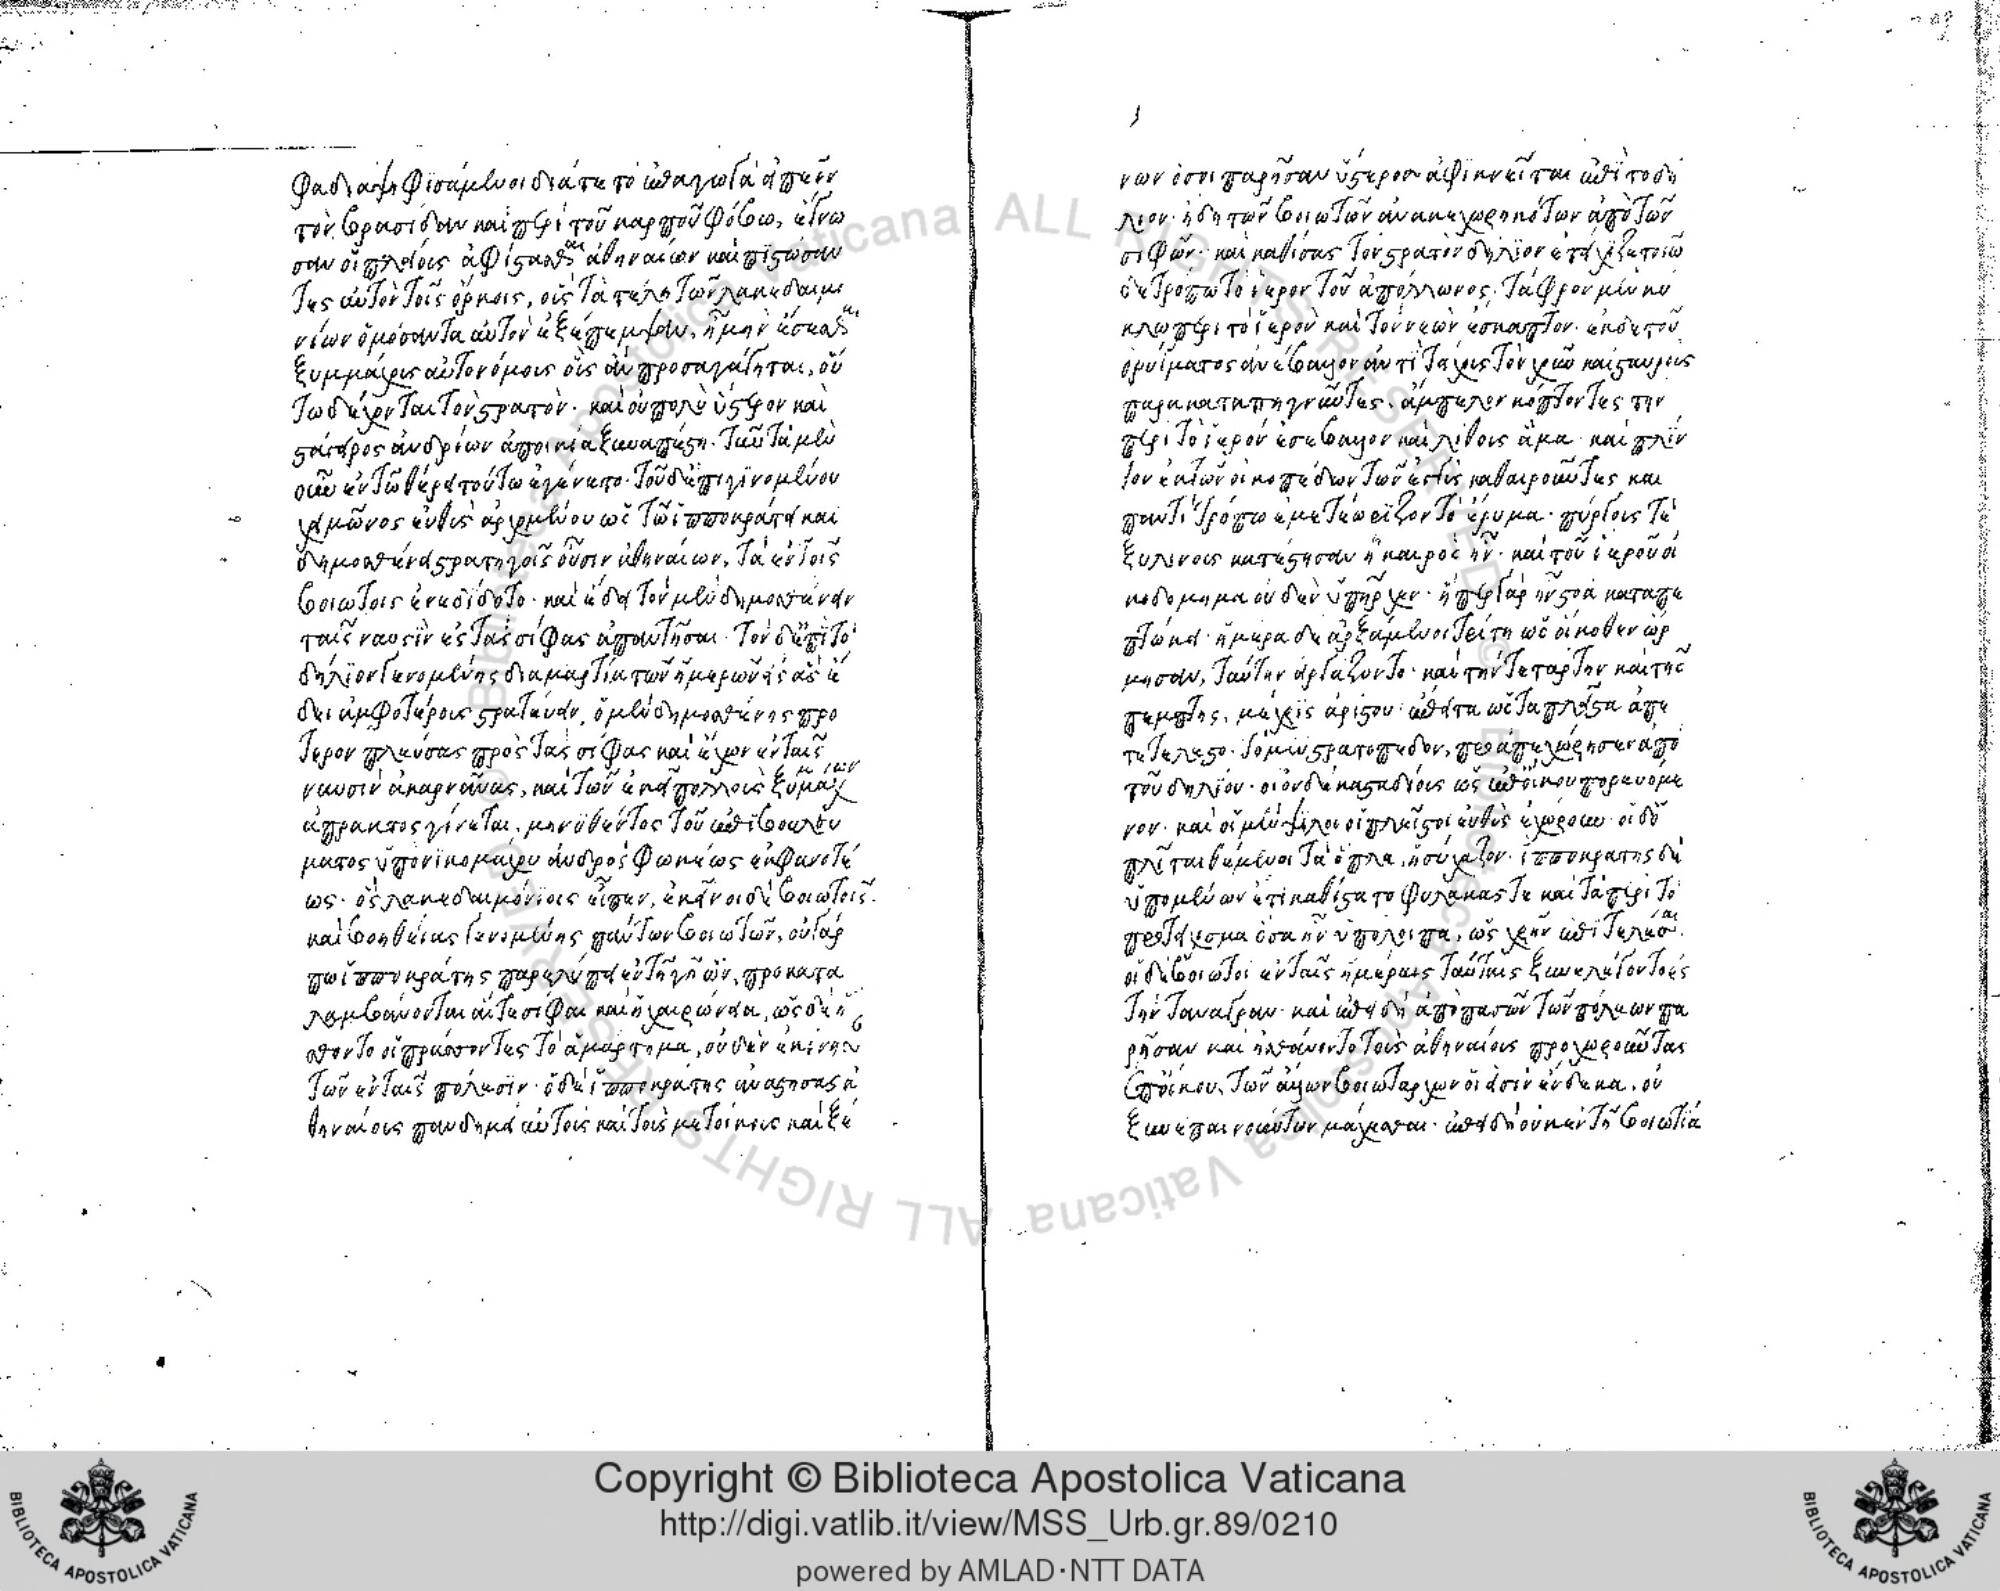 φα διαψηφισάμενοι διά τε τὸ ἐπαγωγὰ εἰπεῖν
τὸν βρασίδαν καὶ περὶ τοῦ καρποῦ φόβω, ἔγνω
σαν οἱ πλείους ἀφίστασθαι ἀθηναίων καὶ πιστώσαν
τες αὐτὸν τοῖς ὅρκοις, οὓς τὰ τέλη τῶν λακεδαιμο
νίων ὀμόσαντα αὐτὸν ἐξέπεμψαν, ἦ μὴν ἔσεσθαι
ξυμμάχους αὐτονόμους οὓς ἂν προσαγάγηται, οὕ
τω δέχονται τὸν στρατόν. καὶ οὐ πολὺ ὕστερον καὶ
στάγειρος ἀνδρίων ἀποικία ξυναπέστη. ταῦτα μὲν
οὖν ἐν τῶ θέρει τούτω ἐγένετο. τοῦ δ' ἐπιγινομένου
χειμῶνος εὐθὺς ἀρχομένου ὡς τῶ ἱπποκράτει καὶ
δημοσθένει στρατηγοῖς οὖσιν ἀθηναίων, τὰ ἐν τοῖς
βοιωτοῖς ἐνεδίδοτο. καὶ ἔδει τὸν μὲν δημοσθένην
ταῖς ναυσὶν ἐς τὰς σίφας ἀπαντῆσαι. τὸν δ' ἐπὶ τὸ
δήλιον γενομένης διαμαρτίας τῶν ἡμερῶν ἐς ἃς ἔ
δει ἀμφοτέρους στρατεύειν, ὁ μὲν δημοσθένης πρό
τερον πλεύσας πρὸς τὰς σίφας καὶ ἔχων ἐν ταῖς
ναυσὶν ἀκαρνᾶνας, καὶ τῶν ἐκεῖ πολλοὺς ξυμμάχων
ἄπρακτος γίνεται, μηνυθέντος τοῦ ἐπιβουλεύ
ματος ὑπὸ νικομάχου ἀνδρὸς φωκέως ἐκ φανοτέ
ως. ὃς λακεδαιμονίοις εἶπεν, ἐκεῖνοι δὲ βοιωτοῖς.
καὶ βοηθείας γενομένης πάντων βοιωτῶν, οὐ γάρ
πω ἱπποκράτης παρελύπει ἐν τῆ γῆ ὤν, προκατα
λαμβάνονται αἵ τε σίφαι καὶ ἡ χαιρώνεια, ὡς δὲ ἤ
σθοντο οἱ πράσσοντες τὸ ἁμάρτημα, οὐδὲν ἐκίνησαν
τῶν ἐν ταῖς πόλεσιν. ὁ δὲ ἱπποκράτης ἀναστήσας ἀ
θηναίους πανδημεὶ αὐτοὺς καὶ τοὺς μετοίκους καὶ ξέ
νων ὅσοι παρῆσαν ὕστερος ἀφικνεῖται ἐπὶ τὸ δή
λιον. ἤδη τῶν βοιωτῶν ἀνακεχωρηκότων ἀπὸ τῶν
σιφῶν. καὶ καθίσας τὸν στρατὸν δήλιον ἐτείχιζε τοιῶ
δε τρόπω τὸ ἱερὸν τοῦ ἀπόλλωνος. τάφρον μὲν κύ
κλω περὶ τὸ ἱερὸν καὶ τὸν νεὼν ἔσκαπτον. ἐκ δὲ τοῦ
ὀρύγματος ἀνέβαλλον ἀντὶ τείχους τὸν χοῦν καὶ σταυροὺς
παρακαταπηγνύντες. ἄμπελον κόπτοντες τὴν
περὶ τὸ ἱερὸν ἐσέβαλλον καὶ λίθους ἅμα. καὶ πλίν
θον ἐκ τῶν οἰκοπέδων τῶν ἐγγὺς καθαιροῦντες καὶ
παντὶ τρόπω ἐμετεώριζον τὸ ἔρυμα. πύργους τε
ξυλίνους κατέστησαν ᾗ καιρὸς ἦν. καὶ τοῦ ἱεροῦ οἰ
κοδόμημα οὐδὲν ὑπῆρχεν. ᾗπερ γὰρ ἦν στοὰ καταπε
πτώκει. ἡμέρα δὲ ἀρξάμενοι τρίτη ὡς οἴκοθεν ὥρ
μησαν, ταύτην εἰργάζοντο. καὶ τὴν τετάρτην καὶ τῆς
πέμπτης, μέχρις ἀρίστου. ἔπειτα ὡς τὰ πλεῖστα ἀπε
τετέλεστο. τὸ μὲν στρατόπεδον, προαπεχώρησεν ἀπὸ
τοῦ δηλίου. οἷον δέκα σταδίους ὡς ἐπ' οἴκου πορευόμε
νον. καὶ οἱ μὲν ψιλοὶ οἱ πλεῖστοι εὐθὺς ἐχώρουν. οἱ δ' ὁ
πλῖται θέμενοι τὰ ὅπλα, ἡσύχαζον. ἱπποκράτης δὲ
ὑπομένων ἔτι καθίστατο φυλακάς τε καὶ τὰ περὶ τὸ
προτείχισμα ὅσα ἦν ὑπόλοιπα, ὡς χρῆν ἐπιτελέσαι.
οἱ δὲ βοιωτοὶ ἐν ταῖς ἡμέραις ταύταις ξυνελέγοντο ἐς
τὴν τάναγραν. καὶ ἐπειδὴ ἀπὸ πασῶν τῶν πόλεων πα
ρῆσαν καὶ ἠσθάνοντο τοὺς ἀθηναίους προχωροῦντας
ἐπ' οἴκου, τῶν ἄλλων βοιωταρχῶν οἵ εἰσιν ἕνδεκα, οὐ
ξυνεπαινούντων μάχεσθαι. ἐπειδὴ οὐκ ἐν τῆ βοιωτία
Copyright © Biblioteca Apostolica Vaticana
http://digi.vatlib.it/view/MSS_Urb.gr.89/0210
powered by AMLAD·NTT DATA